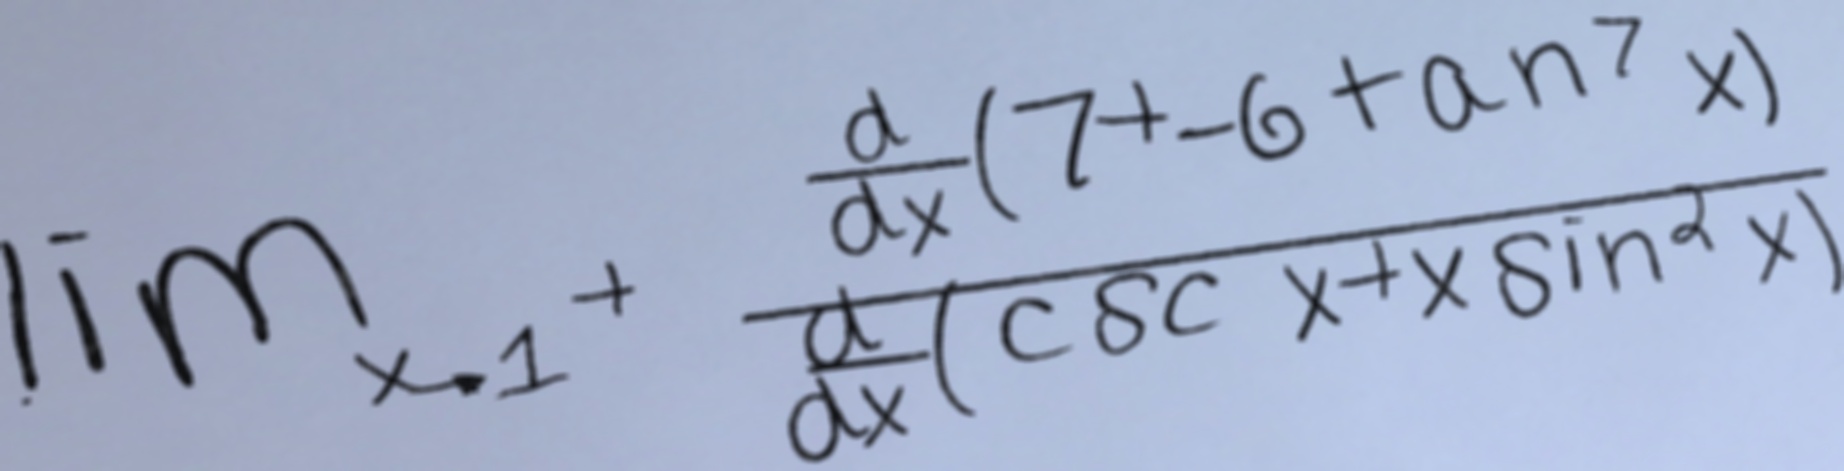 \lim_{x \to 1^+} \frac{\frac{d}{dx}(7+-6 \tan^7 x)}{\frac{d}{dx}(\csc x+x \sin^2 x)}